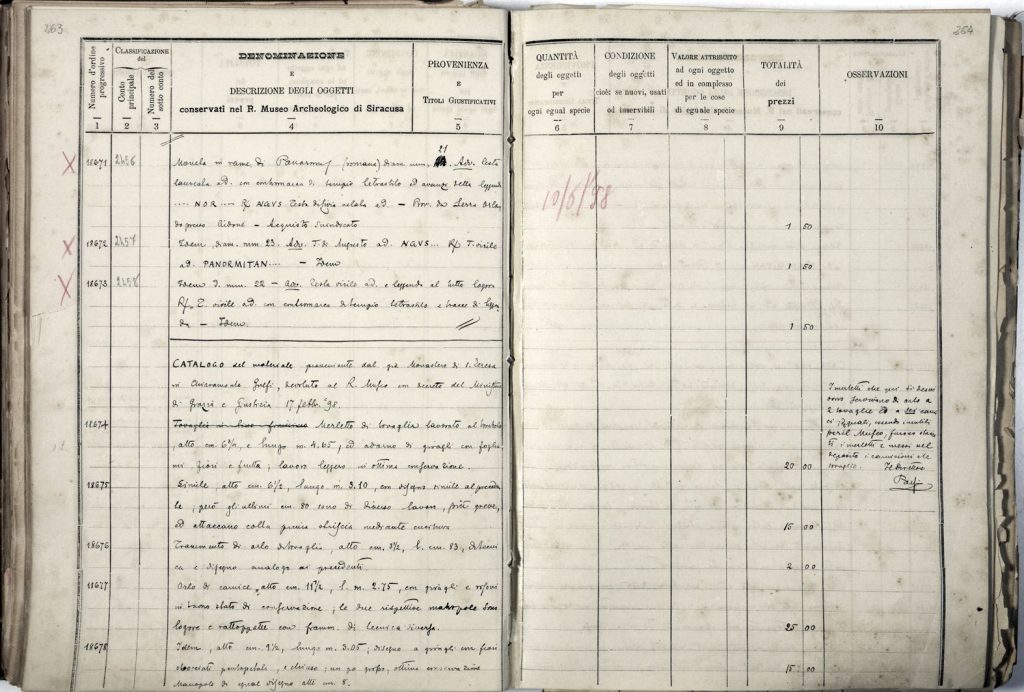 263
264
Numero d'ordine progressivo
CLASSIFICAZIONE del
Conto principale
Numero del sotto conto
DENOMINAZIONE
E
DESCRIZIONE DEGLI OGGETTI
conservati nel R. Museo Archeologico di Siracusa
PROVENIENZA
E
TITOLI GIUSTIFICATIVI
QUANTITÀ
degli oggetti
per
ogni egual specie
CONDIZIONE
degli oggetti
cioè: se nuovi, usati
od inservibili
VALORE ATTRIBUITO
ad ogni oggetto
ed in complesso
per le cose
di eguale specie
TOTALITÀ
dei
prezzi
OSSERVAZIONI
1 2 3 4 5 6 7 8 9 10
18671 2456 Moneta in rame di Panormus (romana) diam. mm. 21. Adv. Testa
laureata ad. con contromarca di tempio tetrastilo ed avanzi della leggenda
.... NOR — R/ NAVS Testa di velata ad. — Prov. da Serra Orlan
do presso Aidone — Acquisto suindicato
1 50
10/5/98
18672 2457 Idem, diam. mm. 23. Adv. T. di Augusto ad. NAVS... R/ T. virile
ad. PANORMITAN.... — Idem
1 50
18673 2458 Idem D. mm. 22 — Adv. Testa virile ad. e leggenda al tutto logora
R/ T. virile ad. con contromarca di tempio tetrastilo e tracce di leggen
da — Idem
1 50
CATALOGO del materiale proveniente dal già Monastero di S. Teresa
in Chiaramonte Gulfi, devoluto al R. Museo con decreto del Ministro
di Grazia e Giustizia 17 febbr. 98.
18674 Merletto di tovaglia lavorato al tombolo
alto cm. 6½, e lungo m. 4.65; ed adorno di giragli con foglia
mi fiori e frutta; lavoro leggero in ottima conservazione.
20 00
18675 Simile, alto cm. 6½, lungo m. 3.10, con disegno simile al preceden
te; però gli ultimi cm. 80 sono di diverso lavoro, più greve,
ed attaccano colla prima striscia mediante cucitura
15 00
18676 Frammento di orlo di tovaglia, alto cm. 8½, l. cm. 83, di tecni
ca e disegno analogo ai precedenti.
2 00
18677 Orlo di camice, alto cm. 11½, l. m. 2.75, con giragli e rosoni
in buono stato di conservazione; le due rispettive manopole sono
logore e rattoppate con framm. di tecnica diversa.
25 00
18678 Idem, alto cm. 9½, lungo m. 3.05; disegno a giragli con fiori
sbocciati pentapetali, e chiuso; un po' grosso, ottima conservazione
Manopole di egual disegno alte cm. 8.
15 00
I merletti che qui si descri
vono servivano di orlo a
2 tovaglie ed a sei cami
ci, i quali, essendo inutili
per il Museo, furono stacca
ti i merletti e messi nel
deposito i camicioni e le
tovaglie. Il direttore